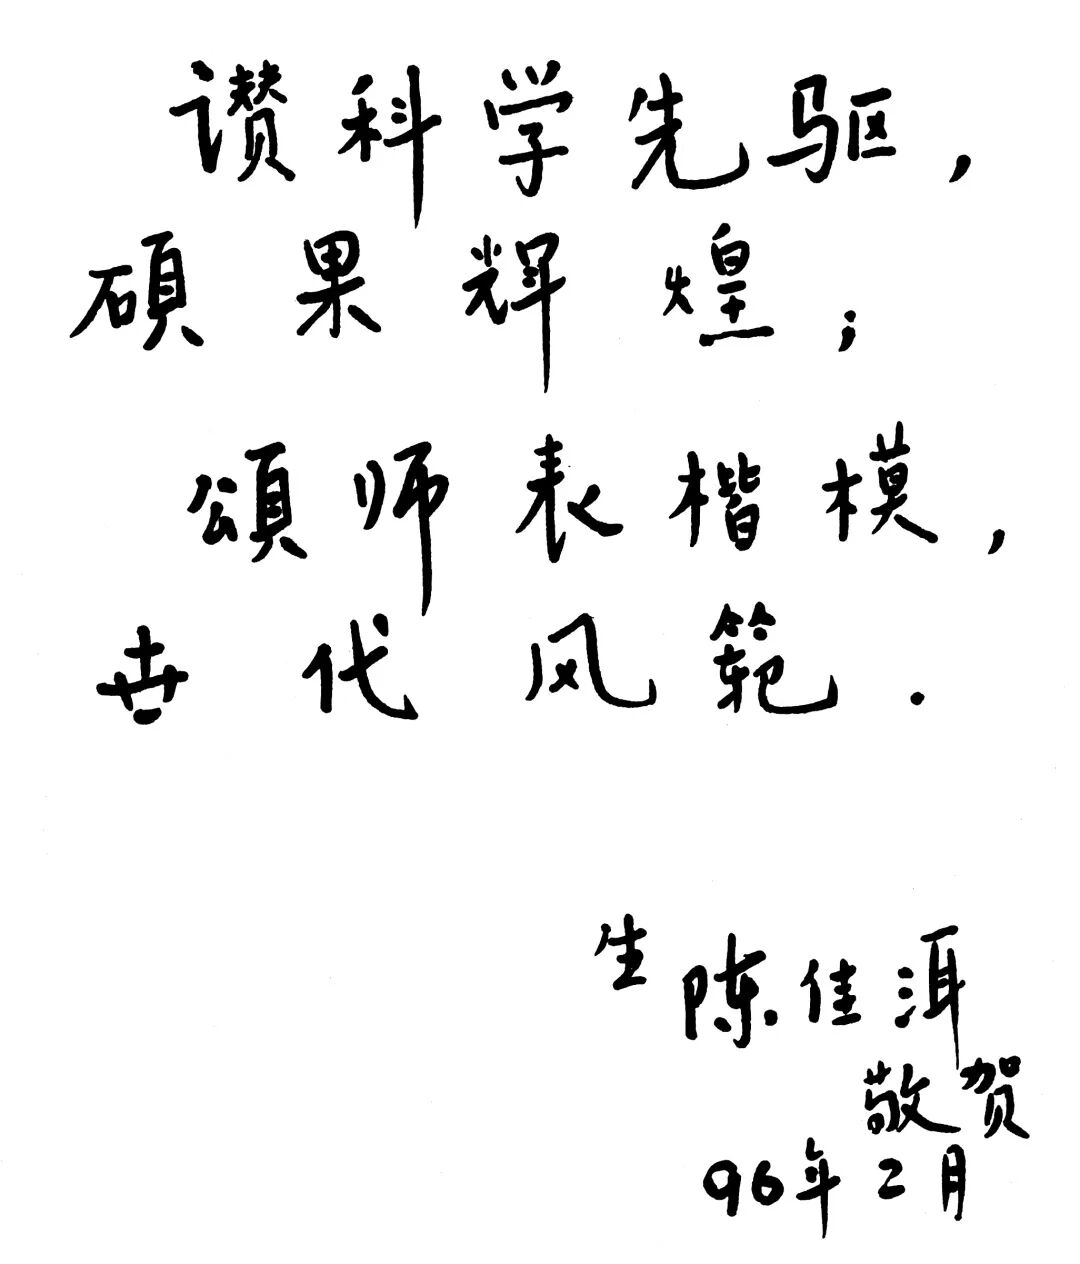 讚科学先驱，
碩果辉煌；
頌师表楷模，
世代风範．
生陈佳洱
敬贺
96年2月